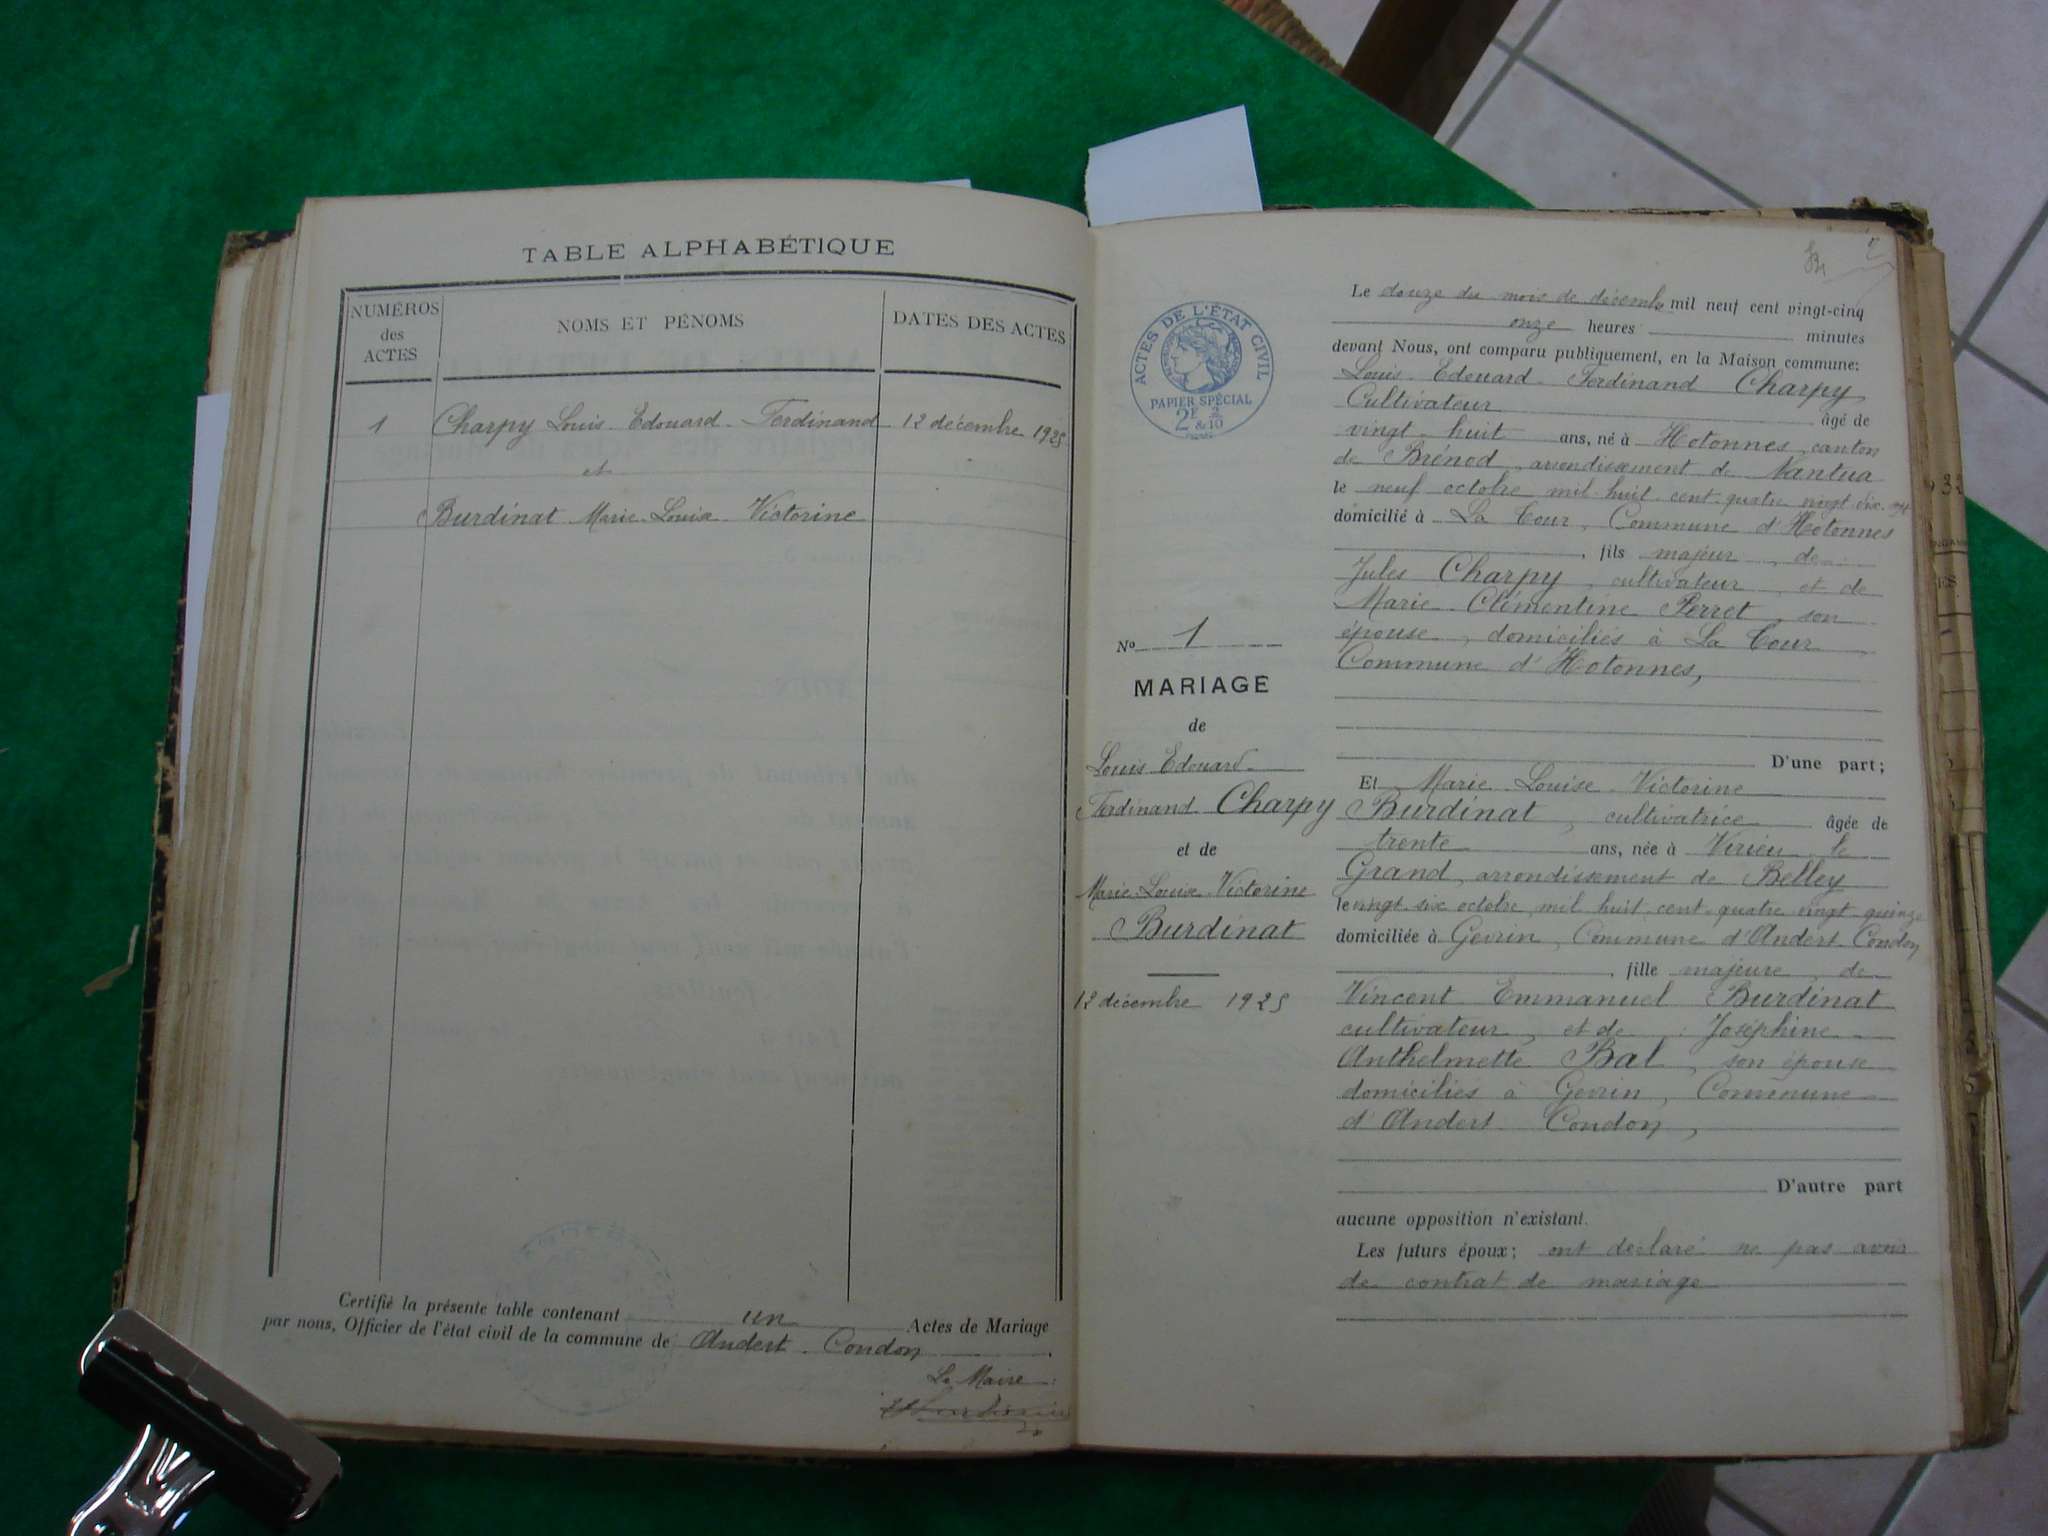 TABLE ALPHABÉTIQUE
NUMÉROS
des
ACTES
NOMS ET PÉNOMS
DATES DES ACTES
1 Charpy Louis-Edouard-Ferdinand 12 décembre 1925
et
Burdinat Marie-Louise Victorine
Certifié la présente table contenant un Actes de Mariage
par nous, Officier de l'état civil de la commune de Andert-Condon
Le Maire:
ACTES DE L'ÉTAT CIVIL
PAPIER SPÉCIAL
2F & 2/10
No 1
MARIAGE
de
Louis Edouard
Ferdinand Charpy
et de
Marie-Louise Victorine
Burdinat
12 décembre 1925
Le douze du mois de décembre mil neuf cent vingt-cinq
onze heures minutes
devant Nous, ont comparu publiquement, en la Maison commune:
Louis-Edouard-Ferdinand Charpy
Cultivateur âgé de
vingt-huit ans, né à Hotonnes, canton
de Brénod, arrondissement de Nantua
le neuf octobre mil-huit-cent-quatre vingt-dix-sept
domicilié à La Cour, Commune d'Hotonnes
, fils majeur de
Jules Charpy, cultivateur, et de
Marie-Clémentine Perret, son
épouse, domiciliés à La Cour
Commune d'Hotonnes,
D'une part;
Et Marie-Louise-Victorine
Burdinat, cultivatrice âgée de
trente ans, née à Virieu-le
Grand, arrondissement de Belley
le vingt-six octobre mil huit-cent-quatre vingt-quinze
domiciliée à Gevrin, Commune d'Andert-Condon
, fille majeure de
Vincent Emmanuel Burdinat
cultivateur, et de : Joséphine
Anthelmette Bal, son épouse
domiciliés à Gevrin, Commune
d'Andert-Condon,
D'autre part
aucune opposition n'existant.
Les futurs époux; ont déclaré ne pas avoir
de contrat de mariage